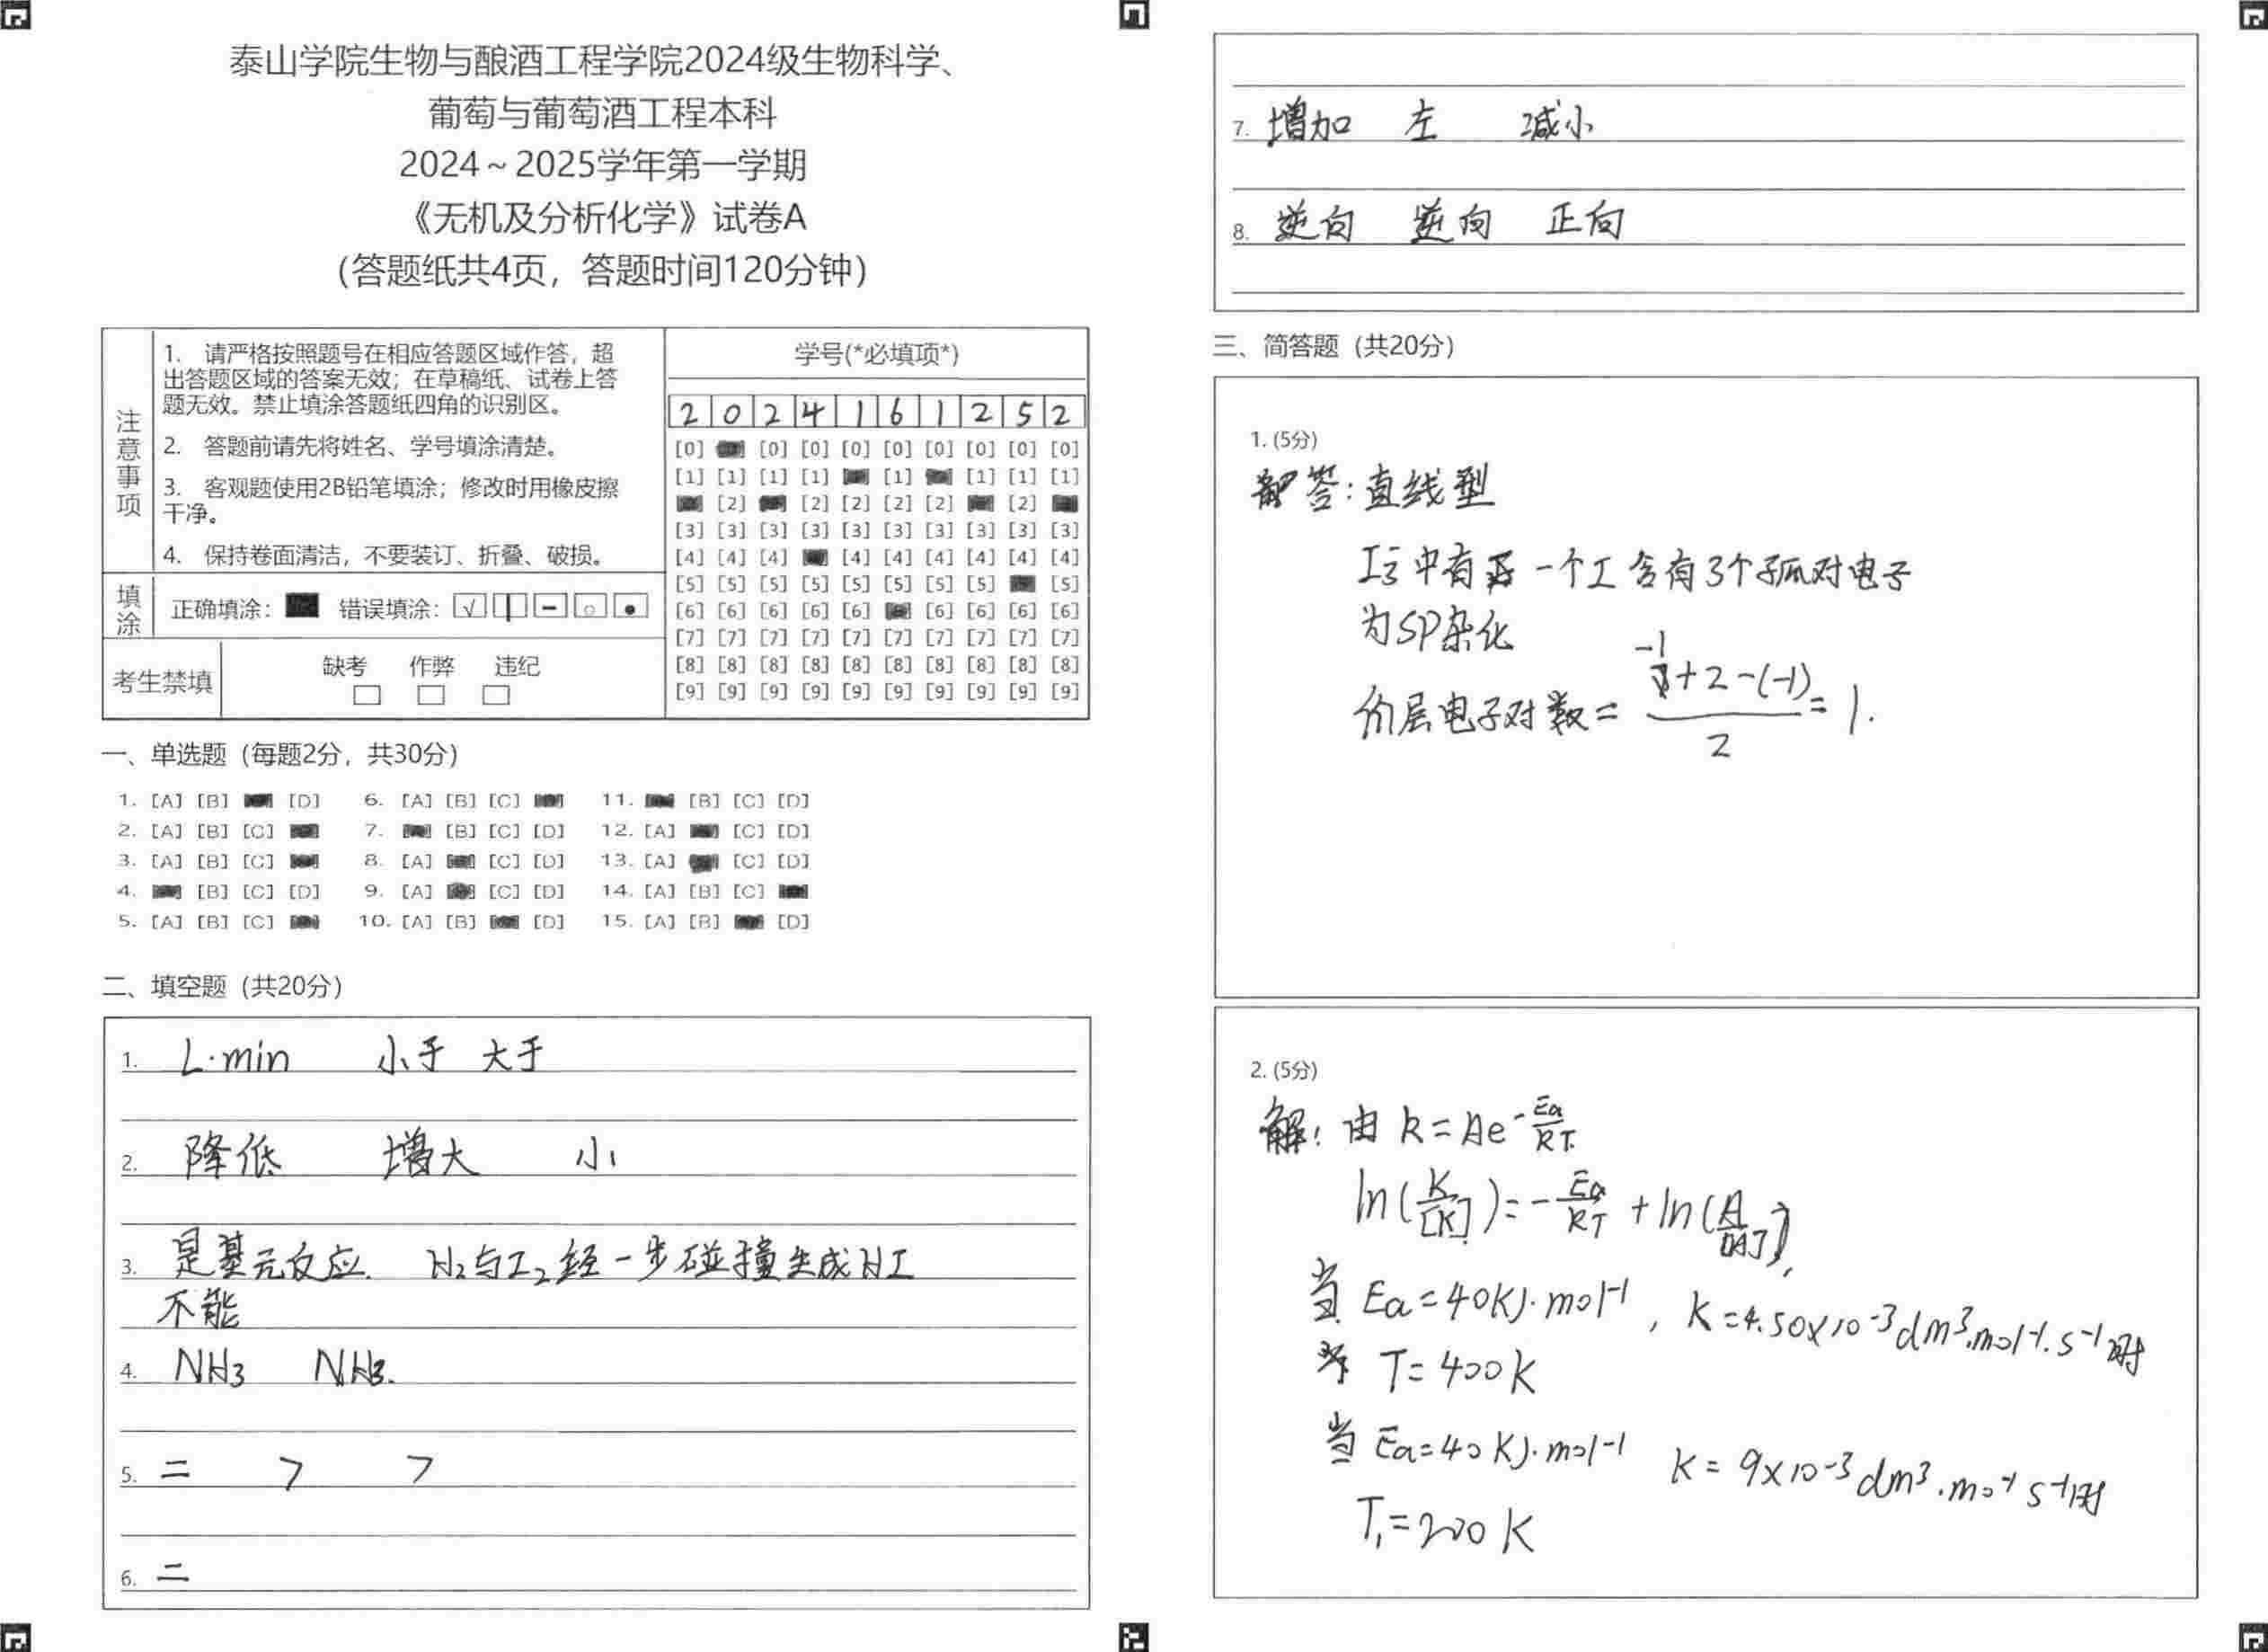 泰山学院生物与酿酒工程学院2024级生物科学、
葡萄与葡萄酒工程本科
2024～2025学年第一学期
《无机及分析化学》试卷A
（答题纸共4页，答题时间120分钟）
注意事项
1. 请严格按照题号在相应答题区域作答，超
出答题区域的答案无效；在草稿纸、试卷上答
题无效。禁止填涂答题纸四角的识别区。
2. 答题前请先将姓名、学号填涂清楚。
3. 客观题使用2B铅笔填涂；修改时用橡皮擦
干净。
4. 保持卷面清洁，不要装订、折叠、破损。
填涂 正确填涂： 错误填涂：
考生禁填 缺考 作弊 违纪
学号(*必填项*)
2 0 2 4 1 6 1 2 5 2
[0] [0] [0] [0] [0] [0] [0] [0] [0]
[1] [1] [1] [1] [1] [1] [1] [1]
[2] [2] [2] [2] [2] [2]
[3] [3] [3] [3] [3] [3] [3] [3] [3] [3]
[4] [4] [4] [4] [4] [4] [4] [4] [4]
[5] [5] [5] [5] [5] [5] [5] [5] [5]
[6] [6] [6] [6] [6] [6] [6] [6] [6]
[7] [7] [7] [7] [7] [7] [7] [7] [7] [7]
[8] [8] [8] [8] [8] [8] [8] [8] [8] [8]
[9] [9] [9] [9] [9] [9] [9] [9] [9] [9]
一、单选题（每题2分，共30分）
1. [A] [B] [D] 6. [A] [B] [C] 11. [B] [C] [D]
2. [A] [B] [C] 7. [B] [C] [D] 12. [A] [C] [D]
3. [A] [B] [C] 8. [A] [C] [D] 13. [A] [C] [D]
4. [B] [C] [D] 9. [A] [C] [D] 14. [A] [B] [C]
5. [A] [B] [C] 10. [A] [B] [D] 15. [A] [B] [D]
二、填空题（共20分）
1. L·min 小于 大于
2. 降低 增大 小
3. 是基元反应. H2与I2经一步碰撞生成HI
不能
4. NH3 NH3.
5. 二 > >
6. 二
7. 增加 左 减小
8. 逆向 逆向 正向
三、简答题（共20分）
1. (5分)
解答：直线型
I3⁻中有 一个I 含有3个孤对电子
为SP杂化
价层电子对数 = (-1+2-(-1))/2 = 1.
2. (5分)
解：由 k = Ae^(-Ea/RT)
ln(K/[K]) = -Ea/RT + ln(A/[A]),
当 Ea = 40KJ·mol⁻¹, K = 4.50×10⁻³dm³·mol⁻¹·s⁻¹时
T = 400K
当 Ea = 40KJ·mol⁻¹ K = 9×10⁻³dm³·mo⁻¹ s⁻¹时
T₁ = 200K